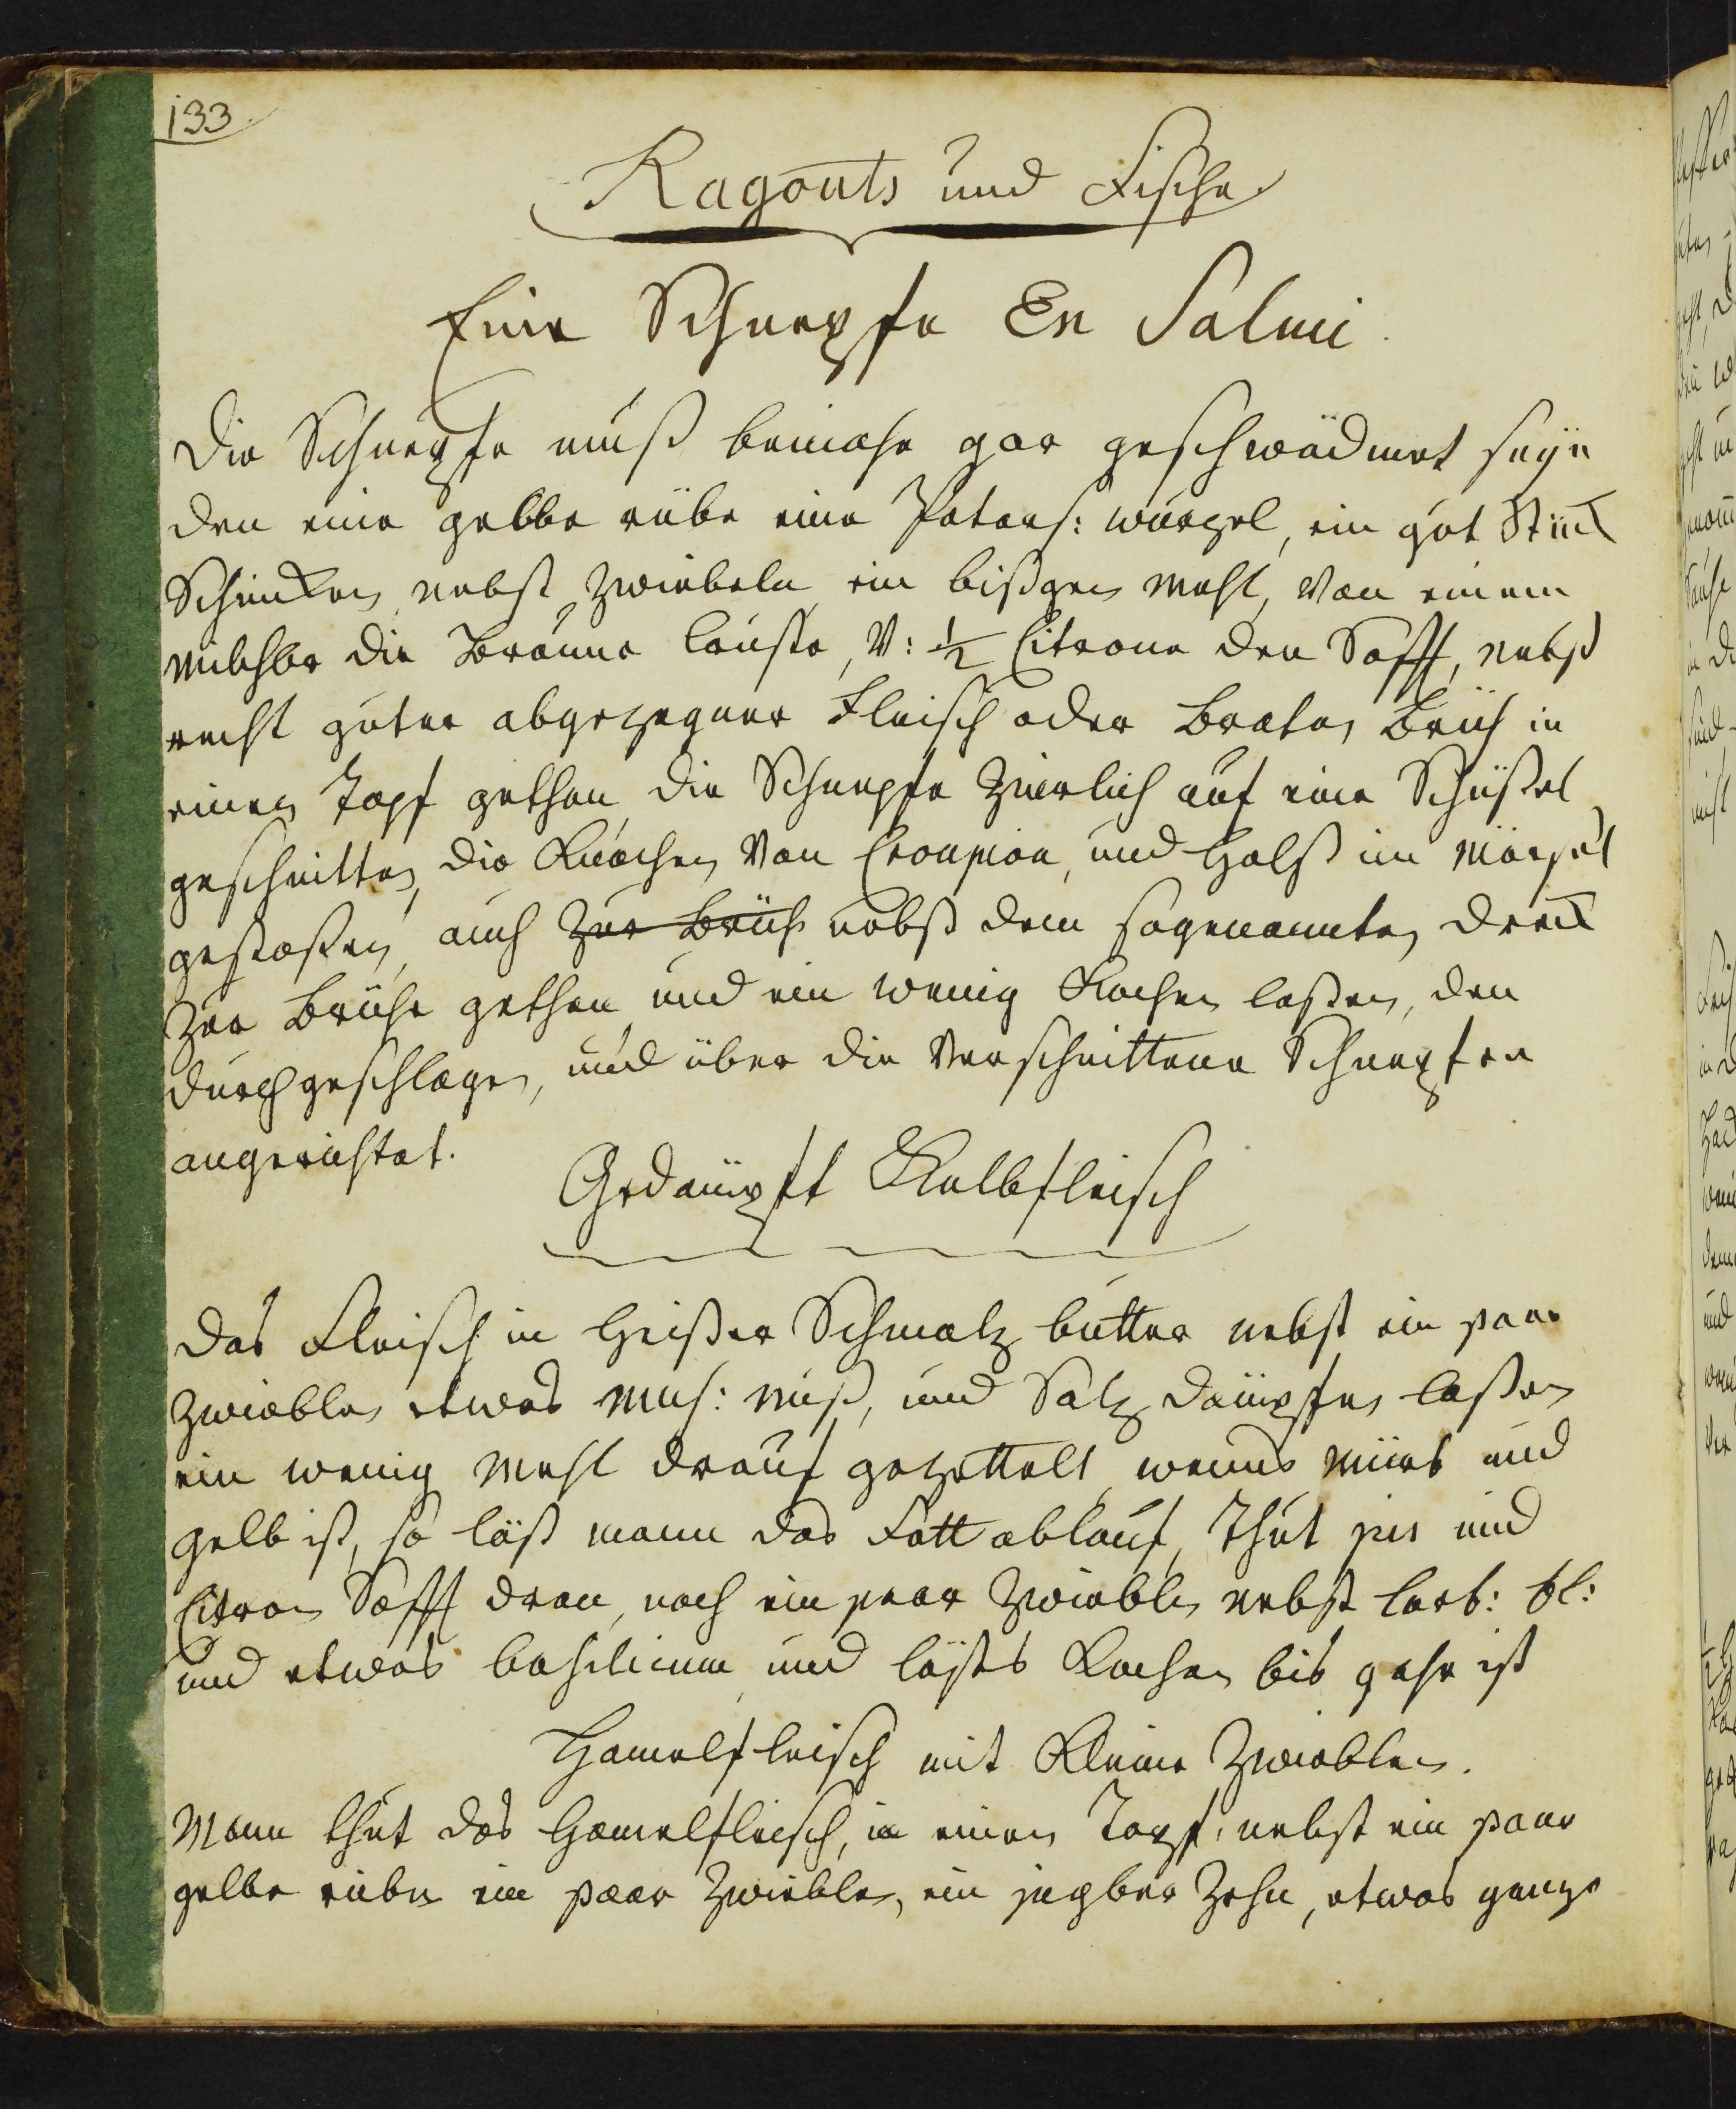 133
Ragouts und Fische
Eine Schnepfe En Salmi.
Die Schnepfe muß beinahe gar geschwädmet seyn
den eine gelbe rübe eine Peters: wurzel, ein gut Stück
Schincken, nebst zwiebeln ein bißgen Mehl, Von einem
Milchbr die Braune Cruste, V: ½ Citrone den Safft, nebst
recht guter abgezogner Fleisch oder Braten Brüh in
einen Topf gethan, die Schnepfe zierlich auf eine Schüßel
geschnitten, die Knochen Von Croupion, und Halß im Mörsel
gestoßen, auch zur Brüh nebst dem sogenannten Dreck
Zur Brühe gethan und ein wenig Kochen laßen, den
durchgeschlagen, und über die Verschnittene Schnepfen
angerichtet.
Gedämpft Kalbfleisch
Das Fleisch in heißer Schmalz butter nebst ein paar
zwieblen etwas Mus: nuß, und Salz dämpfen laßen
ein wenig Mehl drauf gezettelt, wenns Mürb und
gelb ist, so läß mann das Fett ablauf, thut jus und
Citron Safft dran, noch ein paar Zwieblen nebst Lorb: bl:
und etwas basilicum und läßts Kochen bis gahr ist
Hamelfleisch mit Kleine Zwieblen.
Mann thut das Hamelfleisch, in einen Topf, nebst ein paar
gelbe rüben ein paar Zwieblen, ein Zehn, etwas ganze